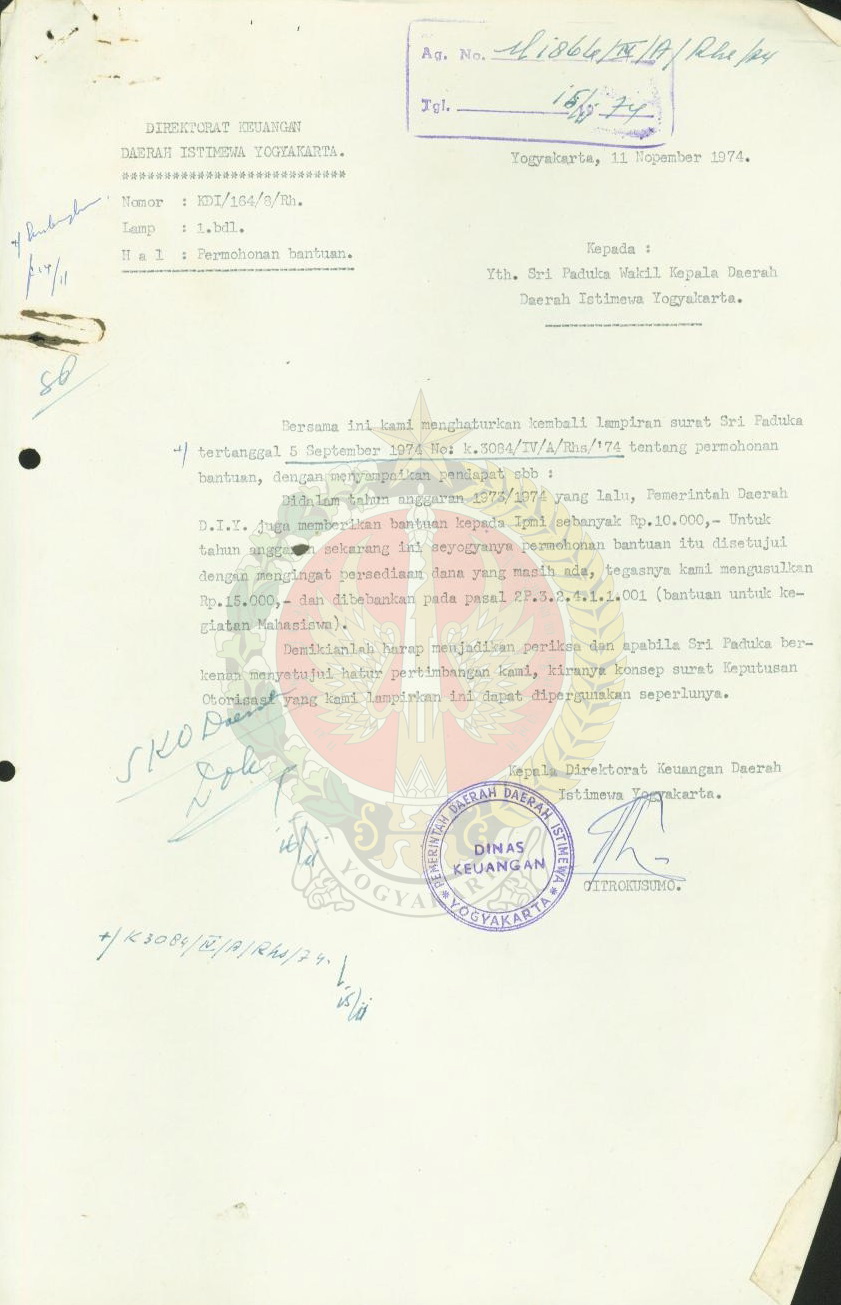 Ag. No.
Tgl. 15/11 74
DIREKTORAT KEUANGAN
DAERAH ISTIMEWA YOGYAKARTA.
**************************
Yogyakarta, 11 Nopember 1974.
Nomor : KDI/164/8/Rh.
Lamp : 1.bdl.
H a l : Permohonan bantuan.
14/11
Kepada :
Yth. Sri Paduka Wakil Kepala Daerah
Daerah Istimewa Yogyakarta.
Bersama ini kami menghaturkan kembali lampiran surat Sri Paduka
tertanggal 5 September 1974 No: k.3084/IV/A/Rhs/'74 tentang permohonan
bantuan, dengan menyampaikan pendapat sbb :
Didalam tahun anggaran 1973/1974 yang lalu, Pemerintah Daerah
D.I.Y. juga memberikan bantuan kepada Ipmi sebanyak Rp.10.000,- Untuk
tahun anggaran sekarang ini seyogyanya permohonan bantuan itu disetujui
dengan mengingat persediaan dana yang masih ada, tegasnya kami mengusulkan
Rp.15.000,- dan dibebankan pada pasal 2P.3.2.4.1.1.001 (bantuan untuk ke-
giatan Mahasiswa).
Demikianlah harap menjadikan periksa dan apabila Sri Paduka ber-
kenan menyetujui hatur pertimbangan kami, kiranya konsep surat Keputusan
Otorisasi yang kami lampirkan ini dapat dipergunakan seperlunya.
SKO Daerah
Kepala Direktorat Keuangan Daerah
Istimewa Yogyakarta.
PEMERINTAH DAERAH DAERAH ISTIMEWA
DINAS
KEUANGAN
* YOGYAKARTA *
CITROKUSUMO.
YOGYAKARTA
+/ K3084/IV/A/Rhs/74.
15/11